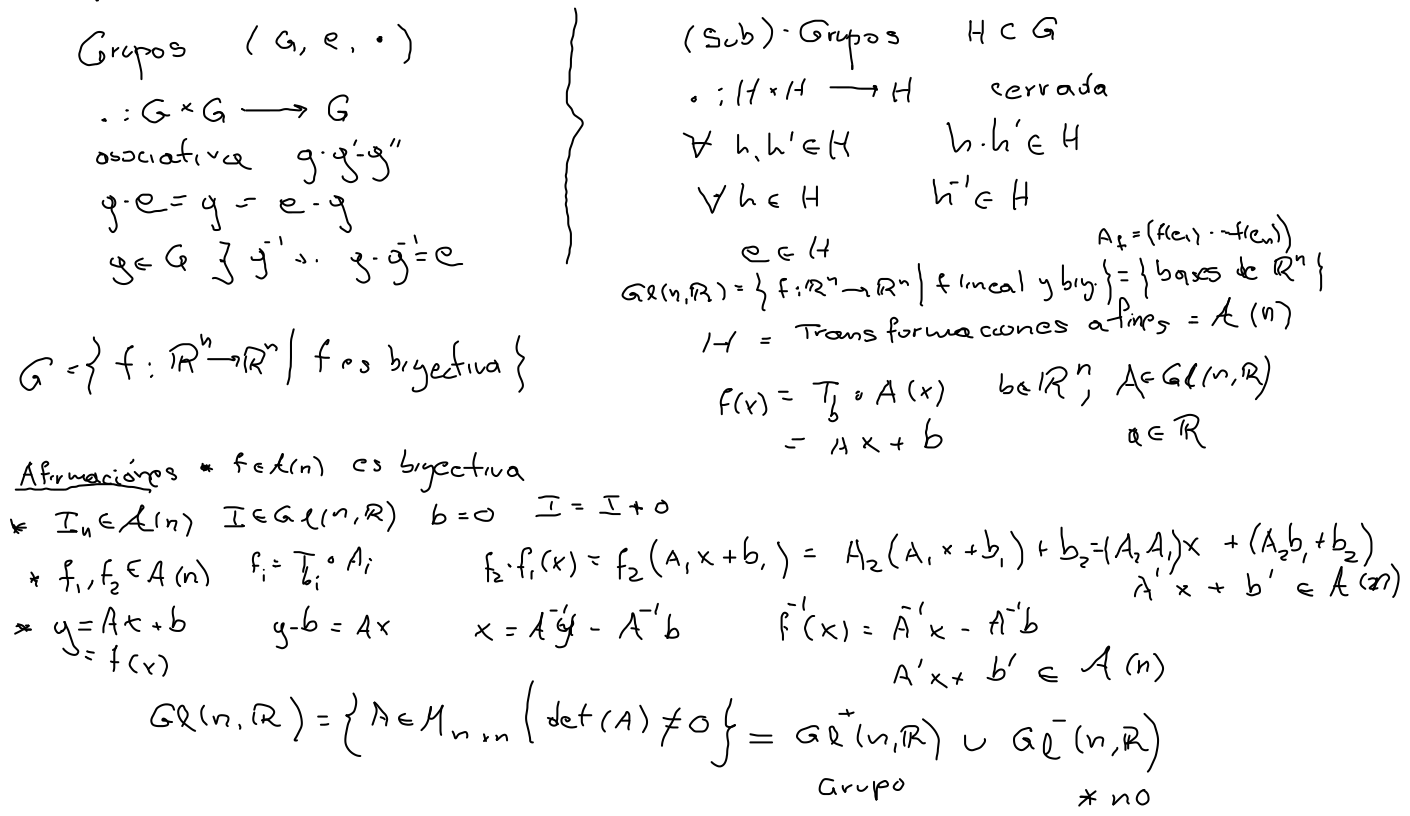 Grupos (G, e, ·)
· : G × G ⟶ G
asociativa g·g'·g''
g·e = g = e·g
g ∈ G ∃ g⁻¹ g·g⁻¹ = e
G = { f : ℝⁿ → ℝⁿ | f es biyectiva }
(Sub)-Grupos H ⊂ G
· : H × H ⟶ H cerrada
∀ h, h' ∈ H h·h' ∈ H
∀ h ∈ H h⁻¹ ∈ H
e ∈ H A_f = (f(e₁) ··· f(eₙ))
Gl(n,ℝ) = { f : ℝⁿ → ℝⁿ | f lineal y biy. } = { bases de ℝⁿ }
H = Transformaciones afines = A(n)
f(x) = T_b ∘ A(x) b ∈ ℝⁿ, A ∈ Gl(n,ℝ)
= Ax + b a ∈ ℝ
Afirmaciones * f ∈ A(n) es biyectiva
* Iₙ ∈ A(n) I ∈ Gl(n,ℝ) b = 0 I = I + 0
* f₁, f₂ ∈ A(n) f_i = T_{b_i} ∘ A_i f₂·f₁(x) = f₂(A₁x + b₁) = A₂(A₁x + b₁) + b₂ = (A₂A₁)x + (A₂b₁ + b₂)
A'x + b' ∈ A(n)
* y = Ax + b y - b = Ax x = A⁻¹y - A⁻¹b f⁻¹(x) = A⁻¹x - A⁻¹b
= f(x) A'x + b' ∈ A(n)
Gl(n,ℝ) = { A ∈ M_{n×n} | det(A) ≠ 0 } = Gl⁺(n,ℝ) ∪ Gl⁻(n,ℝ)
Grupo * no